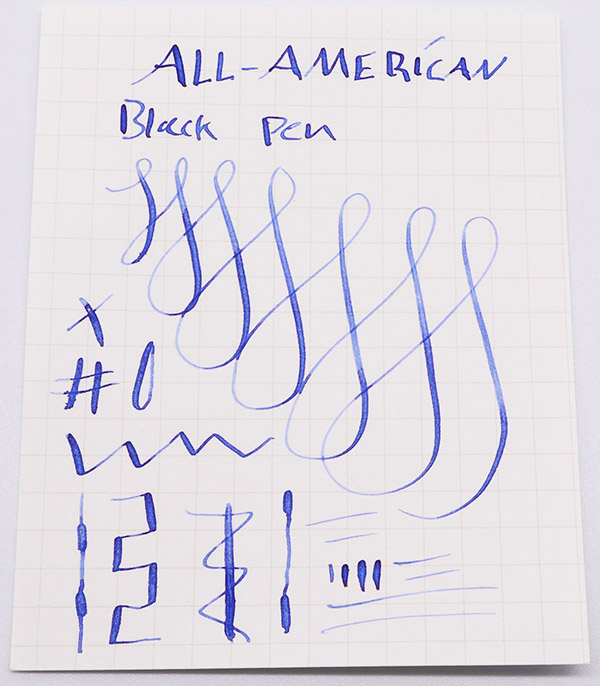 ALL-AMERICAN
Black Pen
X
#0